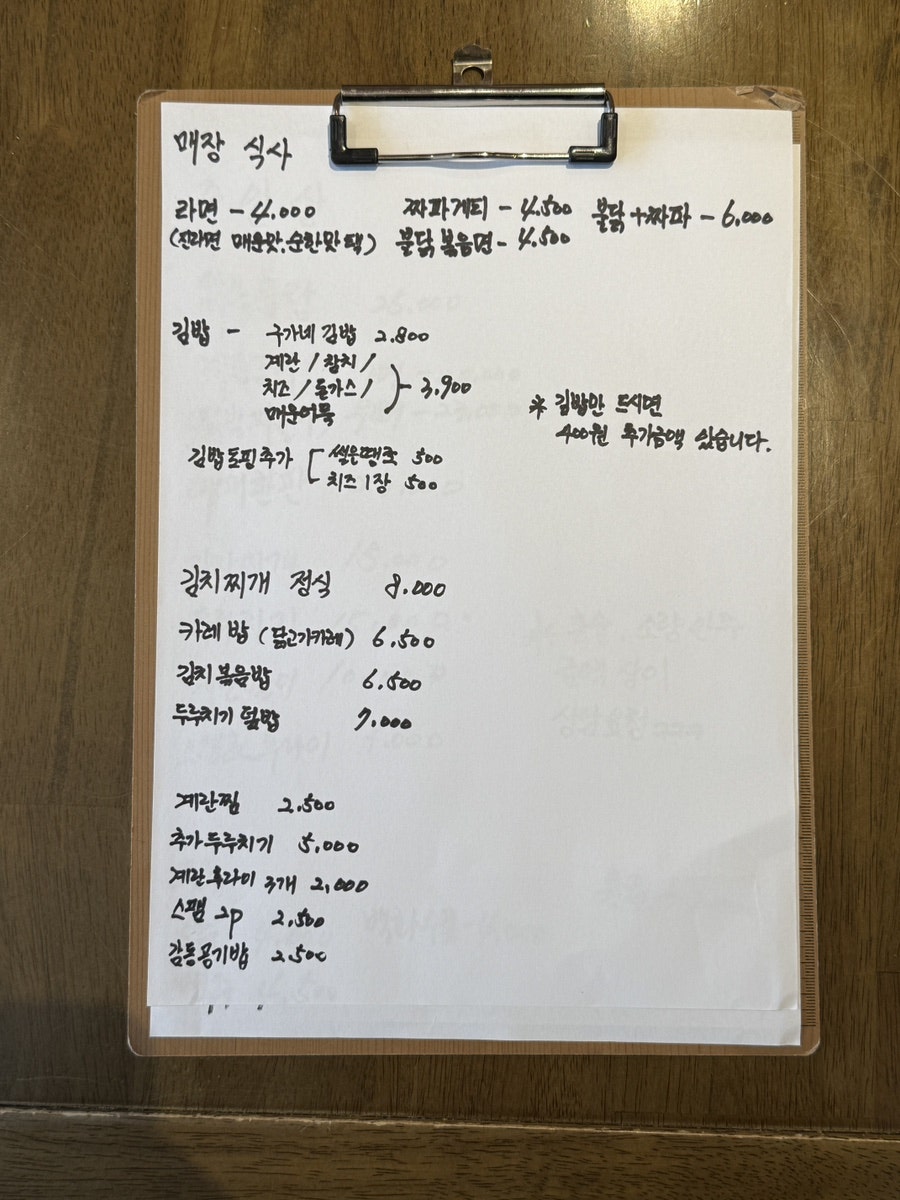 매장 식사
라면 - 4.000 짜파게티 - 4.500 불닭+짜파 - 6.000
(진라면 매운맛, 순한맛 택) 불닭볶음면 - 4.500
김밥 - 구가네 김밥 2.800
계란 / 참치 /
치즈 / 돈가스 / 3.900
매운어묵
※ 김밥만 드시면
400원 추가금액 있습니다.
김밥토핑추가 썰은땡초 500
치즈 1장 500
김치찌개 정식 8.000
카레밥 (닭고기카레) 6.500
김치볶음밥 6.500
두루치기 덮밥 7.000
계란찜 2.500
추가두루치기 5.000
계란후라이 3개 2,000
스팸 2p 2.500
감동공기밥 2.500